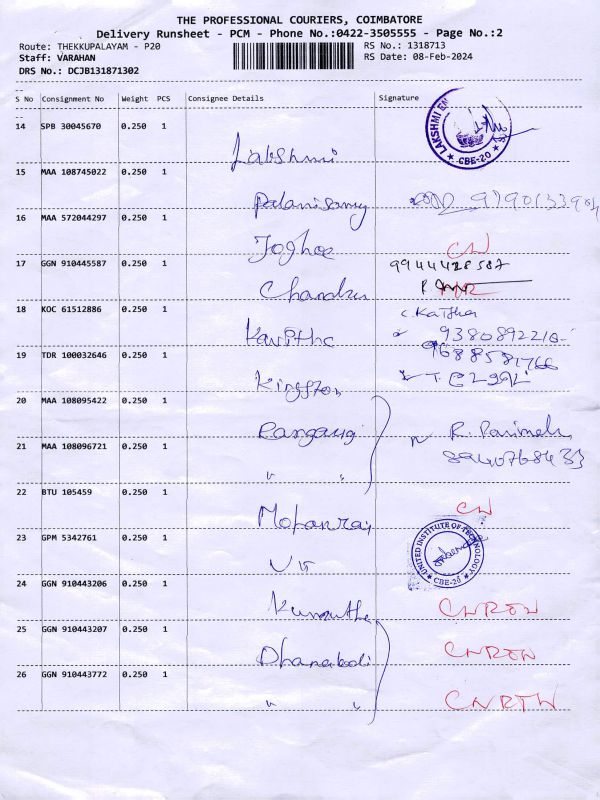 THE PROFESSIONAL COURIERS, COIMBATORE
Delivery Runsheet - PCM - Phone No.:0422-3505555 - Page No.:2
Route: THEKKUPALAYAM - P20
RS No.: 1318713
Staff: VARAHAN
RS Date: 08-Feb-2024
DRS No.: DCJB131871302
S No Consignment No Weight PCS Consignee Details Signature
14 SPB 30045670 0.250 1 Lakshmi
LAKSHMI
CBE-20
15 MAA 108745022 0.250 1 Palanisamy
16 MAA 572044297 0.250 1
17 GGN 910445587 0.250 1 Chandru 9944428587
18 KOC 61512886 0.250 1 Kavitha
19 TDR 100032646 0.250 1 Kingston 9688581766
20 MAA 108095422 0.250 1
R. Parimela
21 MAA 108096721 0.250 1 " " 8940768433
22 BTU 105459 0.250 1 Mohanraj CN
23 GPM 5342761 0.250 1
UNITED INSTITUTE OF TECHNOLOGY
CBE-20
24 GGN 910443206 0.250 1
25 GGN 910443207 0.250 1
26 GGN 910443772 0.250 1 " "